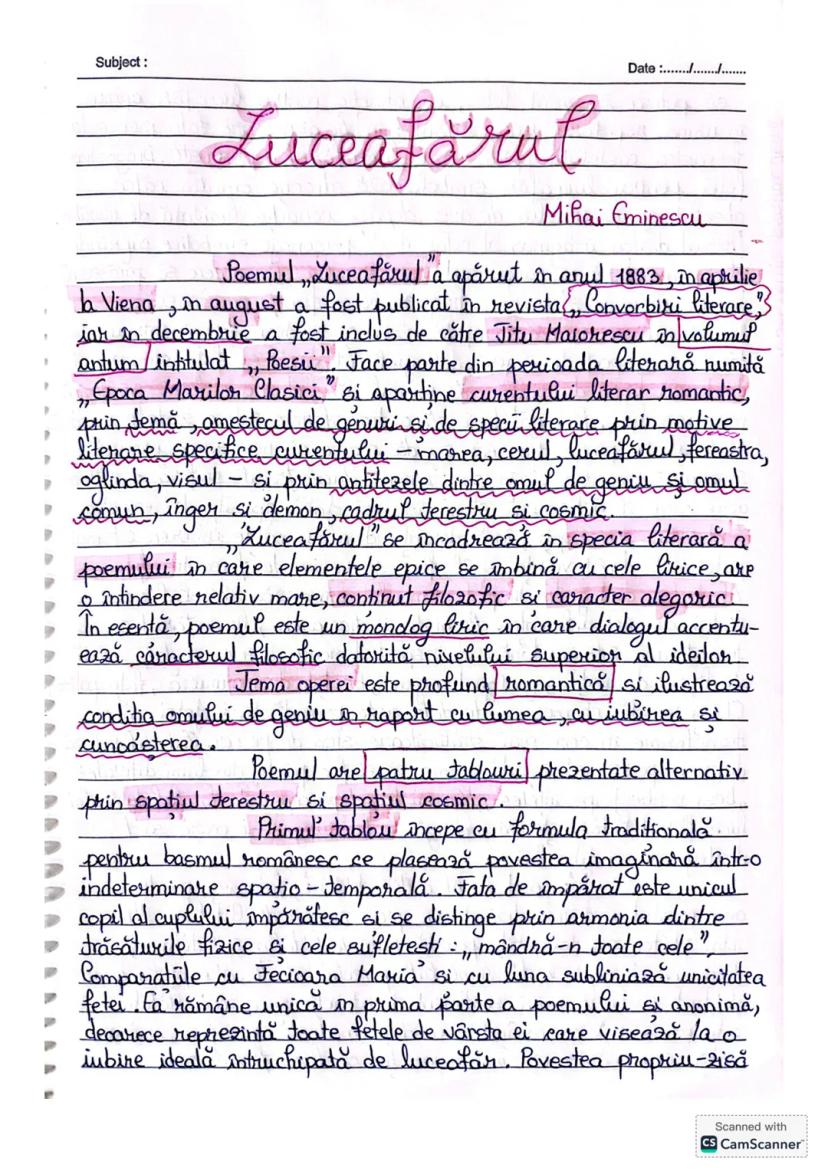 Subject :
Date :......./......./.......
Luceafărul
Mihai Eminescu
Poemul „Luceafărul" a apărut în anul 1883, în aprilie
la Viena, în august a fost publicat în revista „Convorbiri literare",
iar în decembrie a fost inclus de către Titu Maiorescu în volumul
antum intitulat „Poesii". Face parte din perioada literară numită
„Epoca Marilor Clasici," și aparține curentului literar romantic,
prin temă, amestecul de genuri și de specii literare prin motive
literare specifice curentului – marea, cerul, luceafărul, fereastra,
oglinda, visul – și prin antitezele dintre omul de geniu și omul
comun, înger și demon, cadrul terestru și cosmic.
„Luceafărul" se încadrează în specia literară a
poemului în care elementele epice se îmbină cu cele lirice, are
o întindere relativ mare, conținut filozofic și caracter alegoric.
În esență, poemul este un monolog liric în care dialogul accentu-
ează caracterul filosofic datorită nivelului superior al ideilor
Tema operei este profund romantică și ilustrează
condiția omului de geniu în raport cu lumea, cu iubirea și
cunoașterea.
Poemul are patru tablouri prezentate alternativ
prin spațiul terestru și spațiul cosmic.
Primul tablou începe cu formula tradițională
pentru basmul românesc ce plasează povestea imaginară într-o
indeterminare spațio-temporală. Fata de împărat este unicul
copil al cuplului împărătesc și se distinge prin armonia dintre
trăsăturile fizice și cele sufletești : „mândră-n toate cele".
Comparațiile cu Fecioara Maria și cu luna subliniază unicitatea
fetei. Ea rămâne unică în prima parte a poemului și anonimă,
deoarece reprezintă toate fetele de vârsta ei care visează la o
iubire ideală întruchipată de luceafăr. Povestea propriu-zisă
Scanned with
CS CamScanner